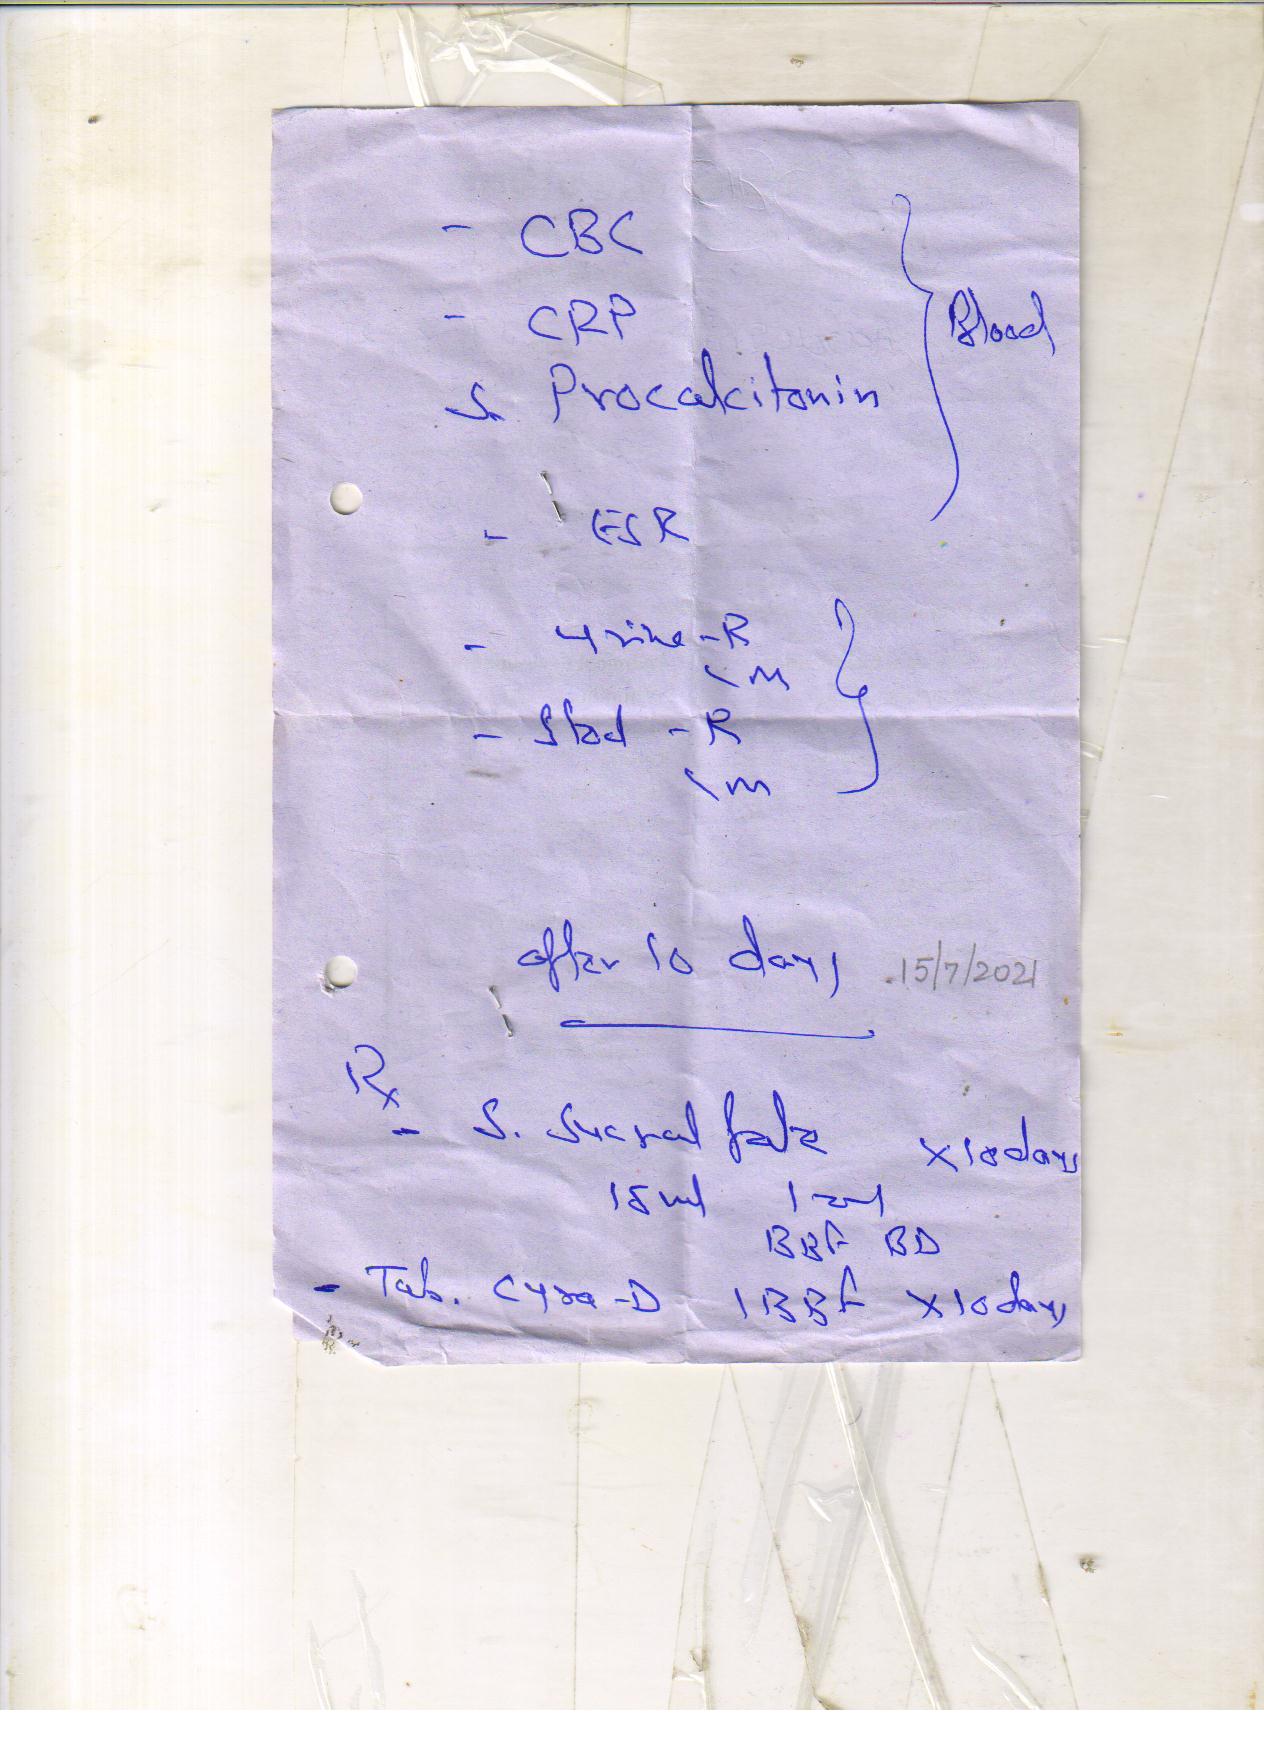 - CBC
- CRP
S. Procalcitonin
Blood
- ESR
- Urine - R
< M
- Stool - R
< M
after 10 days 15/7/2021
Rx
- S. Sucralfate x 10 days
15 ml 1
BBF BD
- Tab. Cyra-D 1 BBF x 10 days